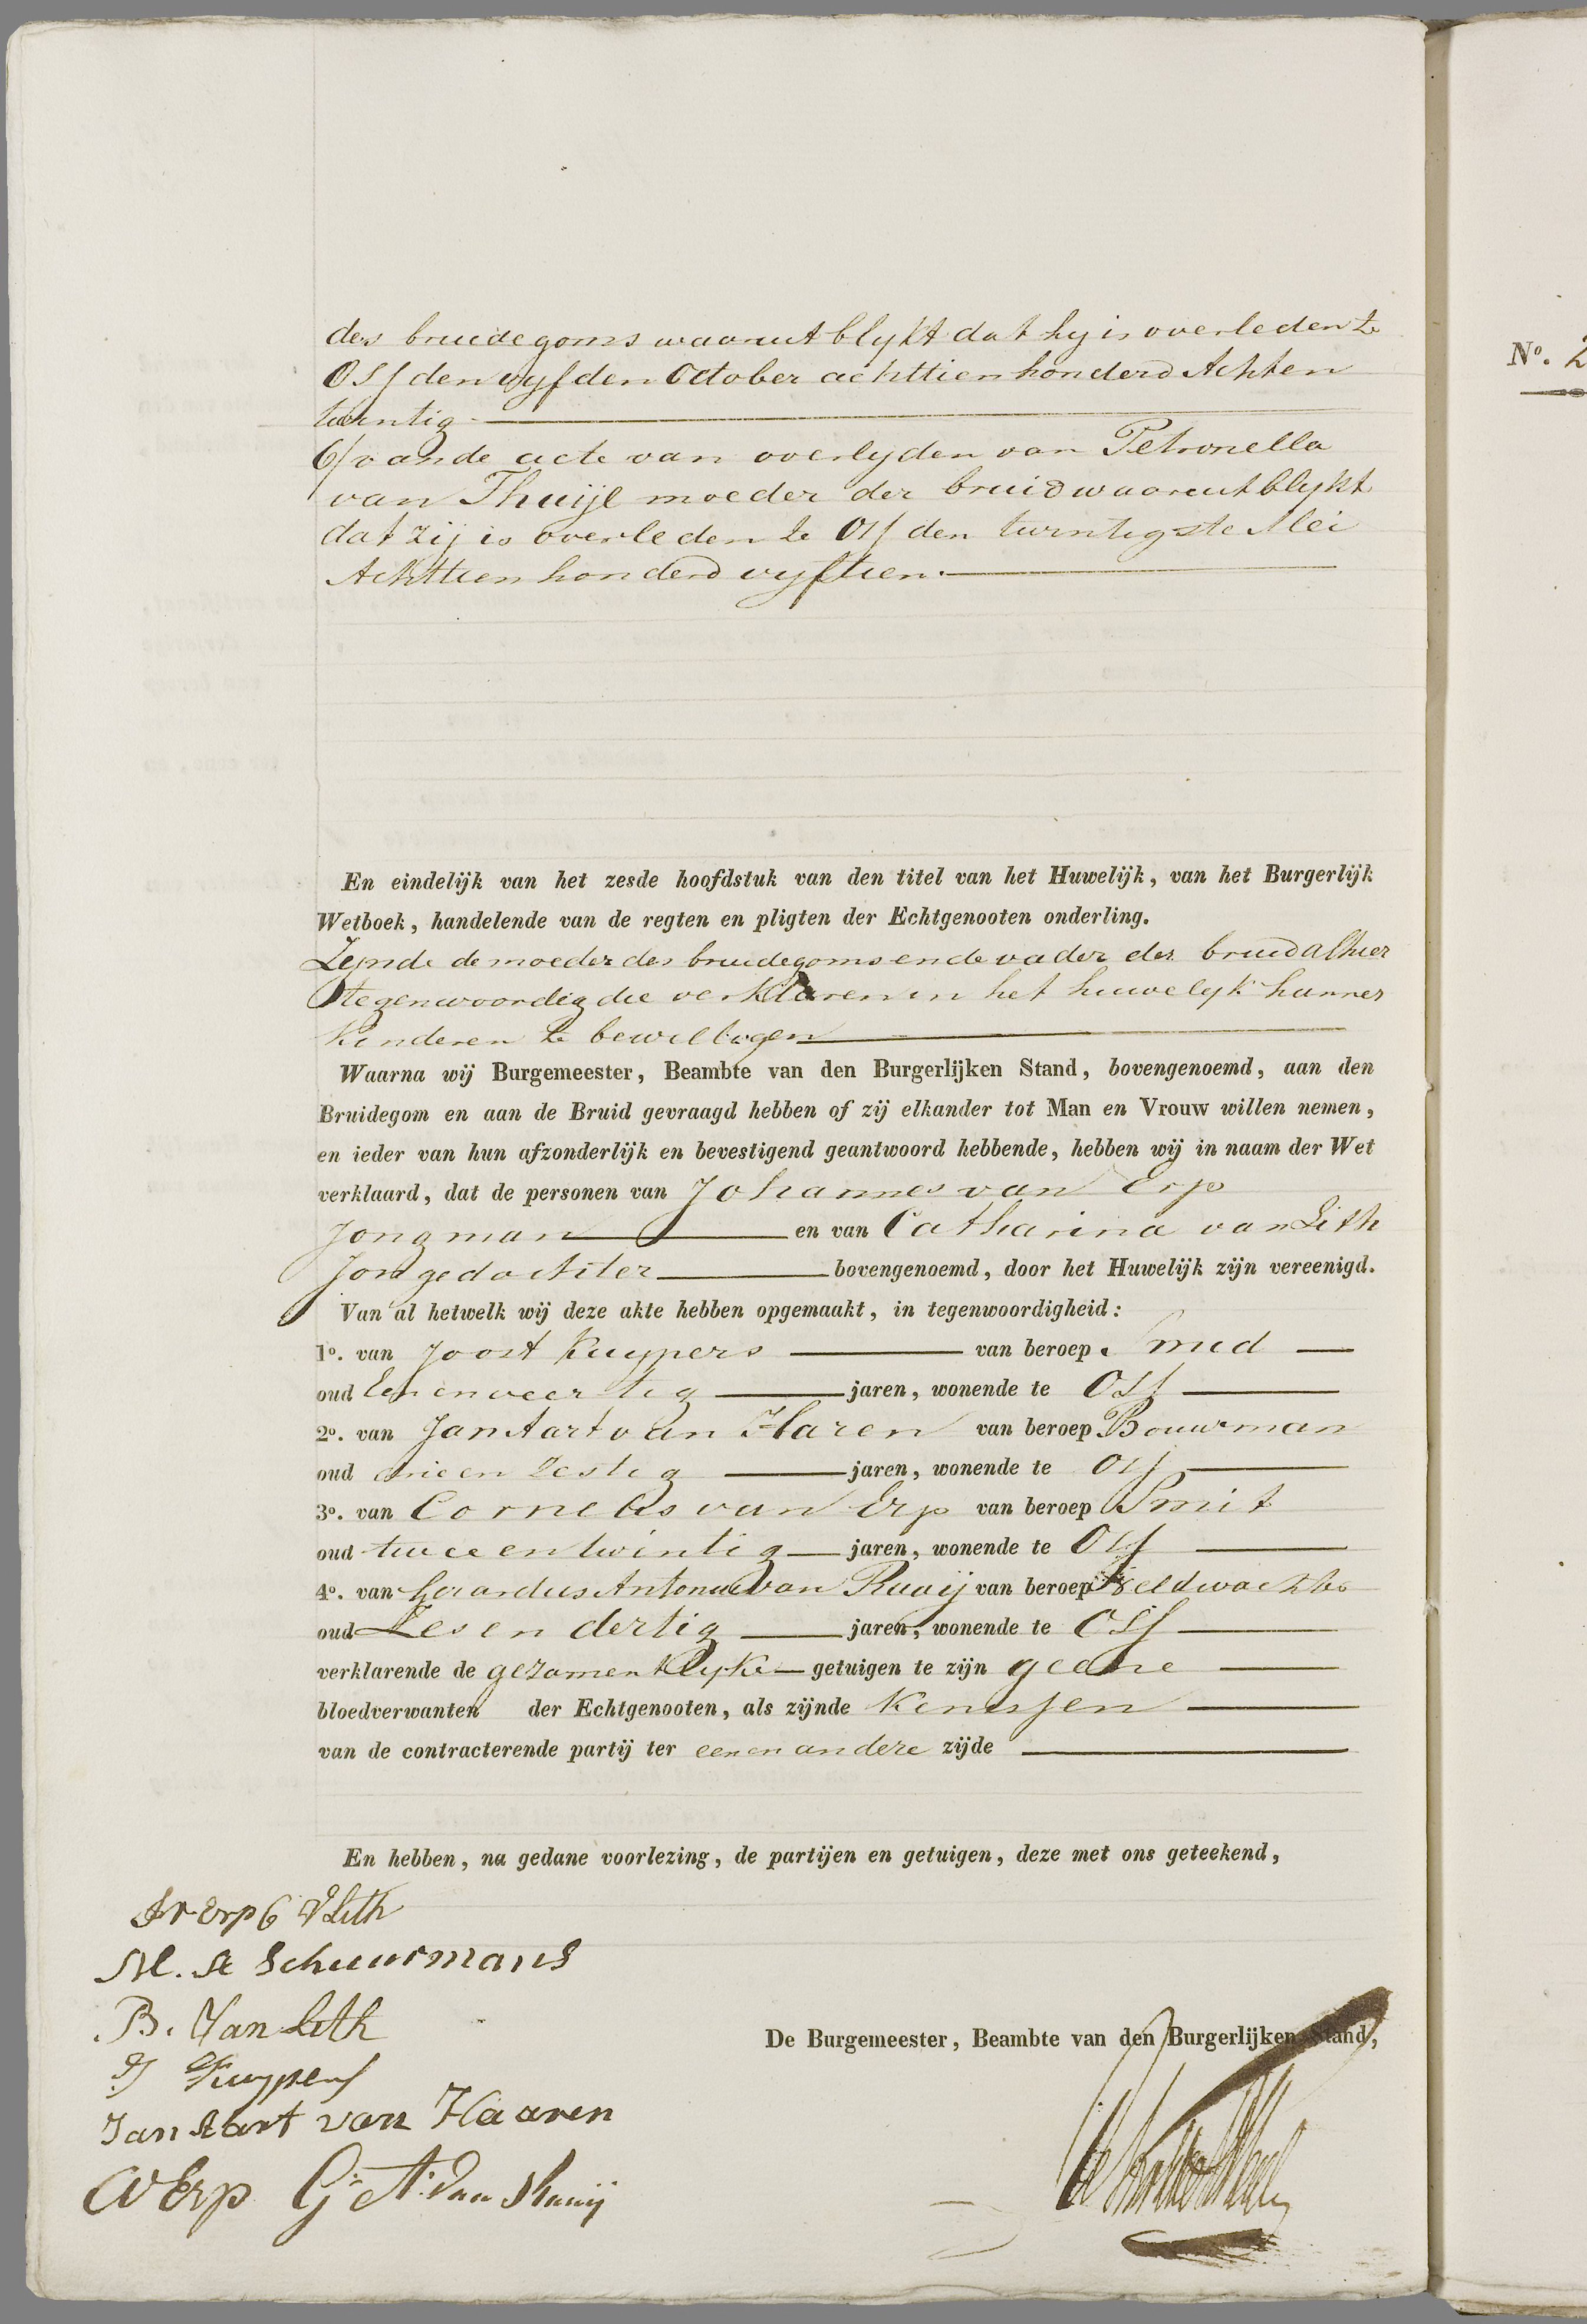 des bruidegoms waaruit blykt dat hy is overleden te
Oss den vyfden October achttienhonderd Achten
twintig
6/ van de acte van overlyden van Petronella
van Thuijl moeder der bruid waaruit blykt
dat zij is overleden te Oss den twintigste Mei
Achttien honderd vyftien.
No. 2
En eindelijk van het zesde hoofdstuk van den titel van het Huwelijk, van het Burgerlijk
Wetboek, handelende van de regten en pligten der Echtgenooten onderling.
Zynde de moeder des bruidegoms en de vader der bruid alhier
tegenwoordig die verklaren in het huwelyk hunner
Kinderen te bewilligen
Waarna wij Burgemeester, Beambte van den Burgerlijken Stand, bovengenoemd, aan den
Bruidegom en aan de Bruid gevraagd hebben of zij elkander tot Man en Vrouw willen nemen,
en ieder van hun afzonderlijk en bevestigend geantwoord hebbende, hebben wij in naam der Wet
verklaard, dat de personen van Johannes van Erp
Jongman en van Catharina van Lith
Jongedochter bovengenoemd, door het Huwelijk zijn vereenigd.
Van al hetwelk wij deze akte hebben opgemaakt, in tegenwoordigheid:
1o. van Joost Kuypers van beroep Smid
oud Een en veertig jaren, wonende te Oss
2o. van Jan Aart van Haren van beroep Bouwman
oud drie en Zestig jaren, wonende te Oss
3o. van Cornelis van Erp van beroep Smit
oud twee en twintig jaren, wonende te Oss
4o. van Gerardus Antonie van Rhuij van beroep Veldwachter
oud Zes en dertig jaren, wonende te Oss
verklarende de gezamentlyke getuigen te zijn geene
bloedverwanten der Echtgenooten, als zijnde Kennissen
van de contracterende partij ter een en andere zijde
En hebben, na gedane voorlezing, de partijen en getuigen, deze met ons geteekend,
J v Erp C v Lith
M. A Schuurmans
B. Van Lith
J Kuypers
Jan Aart van Haaren
C v Erp G. A. Van Rhuij
De Burgemeester, Beambte van den Burgerlijken Stand,